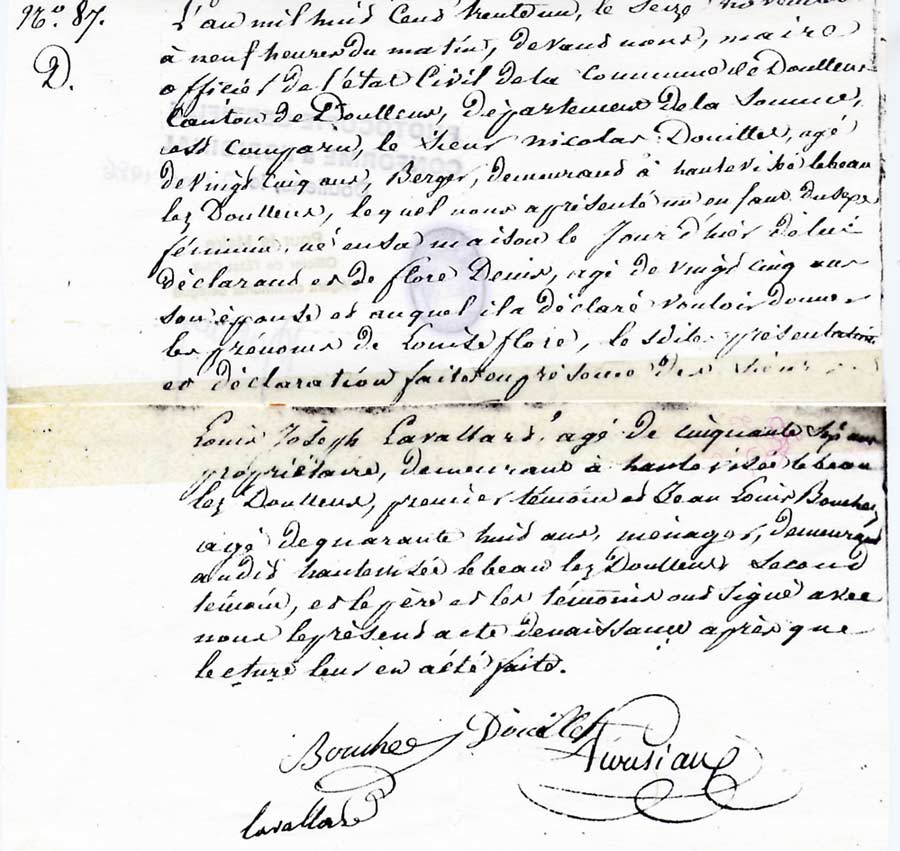 N.° 87.
D.
L'an mil huid cens trente un, le Seize novembre
à neuf heures du matin, devand nous, maire
officier de l'état Civil de la Commune de Doullens
Canton de Doullens, département de la Somme,
est comparu, le Sieur nicolas Douillet, agé
de vingt cinq ans, Berger, demeurand à hautevisée lebeau
lez Doullens, lequel nous a présenté un enfant du sexe
féminin, né en sa maison le Jour d'hier de lui
déclarand et de flore Denis, agé de vingt cinq ans
son épouse et auquel il a déclaré vouloir donner
les prénoms de Louise flore, le sdites présentation
et déclaration faites en présence des Sieurs
Louis Joseph Lavallard, agé de cinquante sept ans
propriétaire, demeurant à hautevisée lebeau
lez Doullens, premier témoin et Jean Louis Bouchez
agé de quarante huid ans, ménager, demeurand
audit hautevisée lebeau lez Doullens Second
témoin, et le père et les témoins ont signé avec
nous le présend acte de naissance après que
lecture leur en a été faite.
Bouchez Douillet
Lavallard